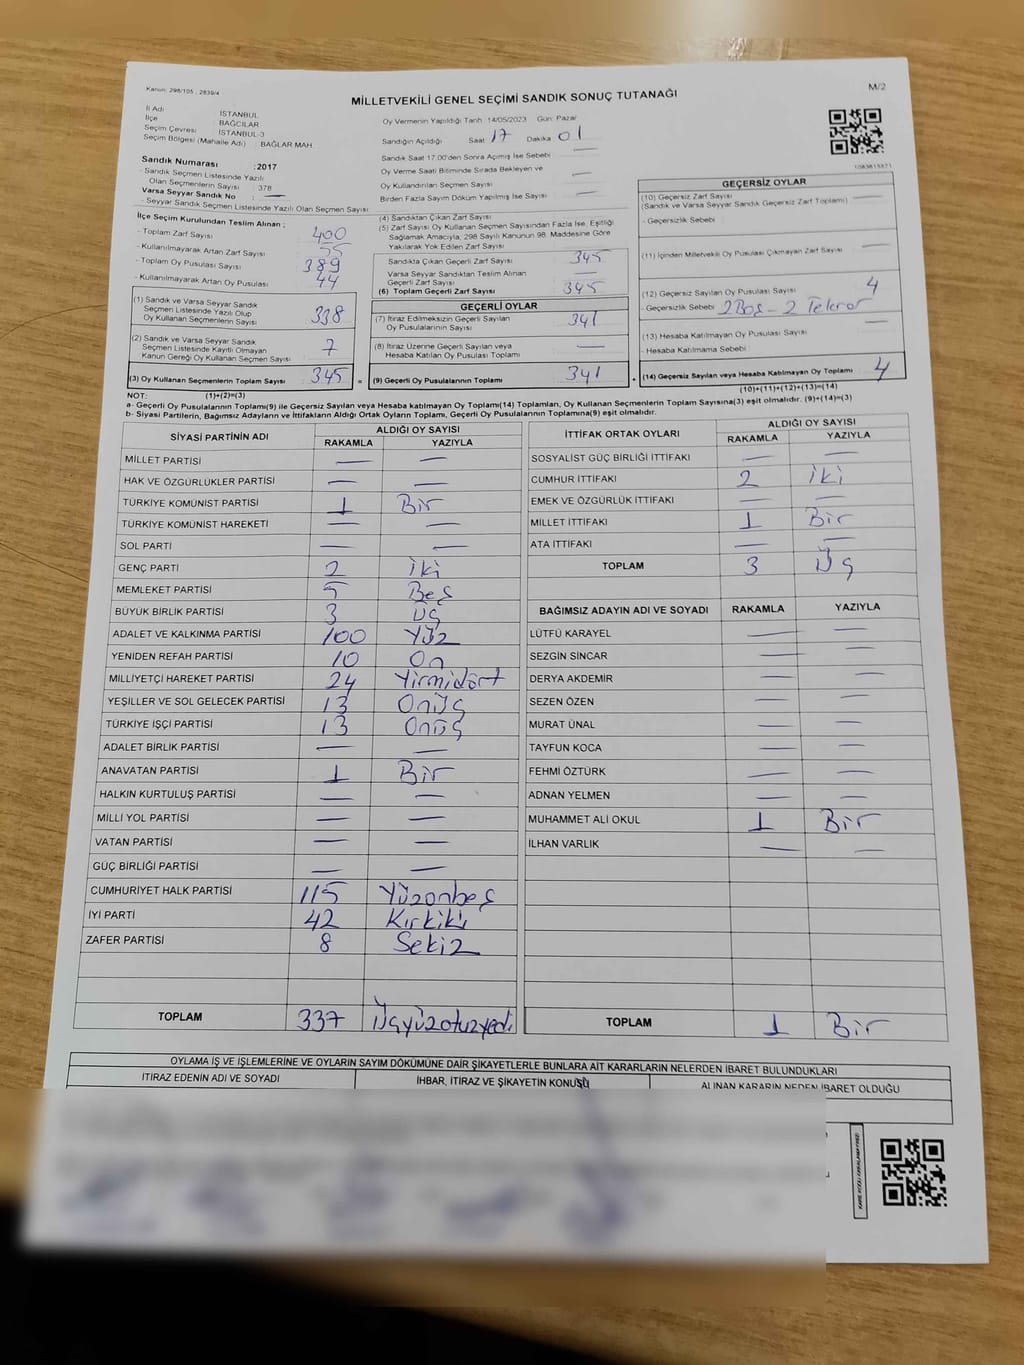 Kanun: 298/105 , 2839/4
MİLLETVEKİLİ GENEL SEÇİMİ SANDIK SONUÇ TUTANAĞI
M/2
İl Adı İSTANBUL
İlçe BAĞCILAR
Seçim Çevresi İSTANBUL-3
Seçim Bölgesi (Mahalle Adı) BAĞLAR MAH.
Sandık Numarası : 2017
- Sandık Seçmen Listesinde Yazılı
Olan Seçmenlerin Sayısı : 378
Varsa Seyyar Sandık No : —
- Seyyar Sandık Seçmen Listesinde Yazılı Olan Seçmen Sayısı
Oy Vermenin Yapıldığı Tarih :14/05/2023 Gün: Pazar
Sandığın Açıldığı Saat 17 Dakika 01
Sandık Saat 17.00'den Sonra Açılmış İse Sebebi —
Oy Verme Saati Bitiminde Sırada Bekleyen ve
Oy Kullandırılan Seçmen Sayısı —
Birden Fazla Sayım Döküm Yapılmış İse Sayısı —
İlçe Seçim Kurulundan Teslim Alınan ;
- Toplam Zarf Sayısı 400
- Kullanılmayarak Artan Zarf Sayısı 55
- Toplam Oy Pusulası Sayısı 389
- Kullanılmayarak Artan Oy Pusulası 44
(1) Sandık ve Varsa Seyyar Sandık
Seçmen Listesinde Yazılı Olup
Oy Kullanan Seçmenlerin Sayısı 338
(2) Sandık ve Varsa Seyyar Sandık
Seçmen Listesinde Kayıtlı Olmayan
Kanun Gereği Oy Kullanan Seçmen Sayısı 7
(3) Oy Kullanan Seçmenlerin Toplam Sayısı 345
(4) Sandıktan Çıkan Zarf Sayısı
(5) Zarf Sayısı Oy Kullanan Seçmen Sayısından Fazla İse, Eşitliği
Sağlamak Amacıyla, 298 Sayılı Kanunun 98. Maddesine Göre
Yakılarak Yok Edilen Zarf Sayısı
Sandıkta Çıkan Geçerli Zarf Sayısı 345
Varsa Seyyar Sandıktan Teslim Alınan
Geçerli Zarf Sayısı —
(6) Toplam Geçerli Zarf Sayısı 345
GEÇERLİ OYLAR
(7) İtiraz Edilmeksizin Geçerli Sayılan
Oy Pusulalarının Sayısı 341
(8) İtiraz Üzerine Geçerli Sayılan veya
Hesaba Katılan Oy Pusulası Toplamı —
= (9) Geçerli Oy Pusulalarının Toplamı 341
GEÇERSİZ OYLAR
(10) Geçersiz Zarf Sayısı —
(Sandık ve Varsa Seyyar Sandık Geçersiz Zarf Toplamı)
- Geçersizlik Sebebi :
(11) İçinden Milletvekili Oy Pusulası Çıkmayan Zarf Sayısı —
(12) Geçersiz Sayılan Oy Pusulası Sayısı 4
- Geçersizlik Sebebi 2 Boş - 2
(13) Hesaba Katılmayan Oy Pusulası Sayısı —
- Hesaba Katılmama Sebebi :
+ (14) Geçersiz Sayılan veya Hesaba Katılmayan Oy Toplamı 4
NOT: (1)+(2)=(3)
(10)+(11)+(12)+(13)=(14)
a- Geçerli Oy Pusulalarının Toplamı(9) ile Geçersiz Sayılan veya Hesaba Katılmayan Oy Toplamı(14) Toplamları, Oy Kullanan Seçmenlerin Toplam Sayısına(3) eşit olmalıdır. (9)+(14)=(3)
b- Siyasi Partilerin, Bağımsız Adayların ve İttifakların Aldığı Ortak Oyların Toplamı, Geçerli Oy Pusulalarının Toplamına(9) eşit olmalıdır.
SİYASİ PARTİNİN ADI
ALDIĞI OY SAYISI
RAKAMLA YAZIYLA
MİLLET PARTİSİ — —
HAK VE ÖZGÜRLÜKLER PARTİSİ — —
TÜRKİYE KOMÜNİST PARTİSİ 1 Bir
TÜRKİYE KOMÜNİST HAREKETİ — —
SOL PARTİ — —
GENÇ PARTİ 2 İki
MEMLEKET PARTİSİ 5 Beş
BÜYÜK BİRLİK PARTİSİ 3 Üç
ADALET VE KALKINMA PARTİSİ 100 Yüz
YENİDEN REFAH PARTİSİ 10 On
MİLLİYETÇİ HAREKET PARTİSİ 24 Yirmidört
YEŞİLLER VE SOL GELECEK PARTİSİ 13 Onüç
TÜRKİYE İŞÇİ PARTİSİ 13 Onüç
ADALET BİRLİK PARTİSİ — —
ANAVATAN PARTİSİ 1 Bir
HALKIN KURTULUŞ PARTİSİ — —
MİLLİ YOL PARTİSİ — —
VATAN PARTİSİ — —
GÜÇ BİRLİĞİ PARTİSİ — —
CUMHURİYET HALK PARTİSİ 115 Yüzonbeş
İYİ PARTİ 42 Kırkiki
ZAFER PARTİSİ 8 Sekiz
TOPLAM 337 Üçyüzotuzyedi
İTTİFAK ORTAK OYLARI
ALDIĞI OY SAYISI
RAKAMLA YAZIYLA
SOSYALİST GÜÇ BİRLİĞİ İTTİFAKI — —
CUMHUR İTTİFAKI 2 İki
EMEK VE ÖZGÜRLÜK İTTİFAKI — —
MİLLET İTTİFAKI 1 Bir
ATA İTTİFAKI — —
TOPLAM 3 Üç
BAĞIMSIZ ADAYIN ADI VE SOYADI RAKAMLA YAZIYLA
LÜTFÜ KARAYEL — —
SEZGİN SİNCAR — —
DERYA AKDEMİR — —
SEZEN ÖZEN — —
MURAT ÜNAL — —
TAYFUN KOCA — —
FEHMİ ÖZTÜRK — —
ADNAN YELMEN — —
MUHAMMET ALİ OKUL 1 Bir
İLHAN VARLIK — —
TOPLAM 1 Bir
OYLAMA İŞ VE İŞLEMLERİNE VE OYLARIN SAYIM DÖKÜMÜNE DAİR ŞİKAYETLERLE BUNLARA AİT KARARLARIN NELERDEN İBARET BULUNDUKLARI
İTİRAZ EDENİN ADI VE SOYADI
İHBAR, İTİRAZ VE ŞİKAYETİN KONUSU
ALINAN KARARIN NEDEN İBARET OLDUĞU